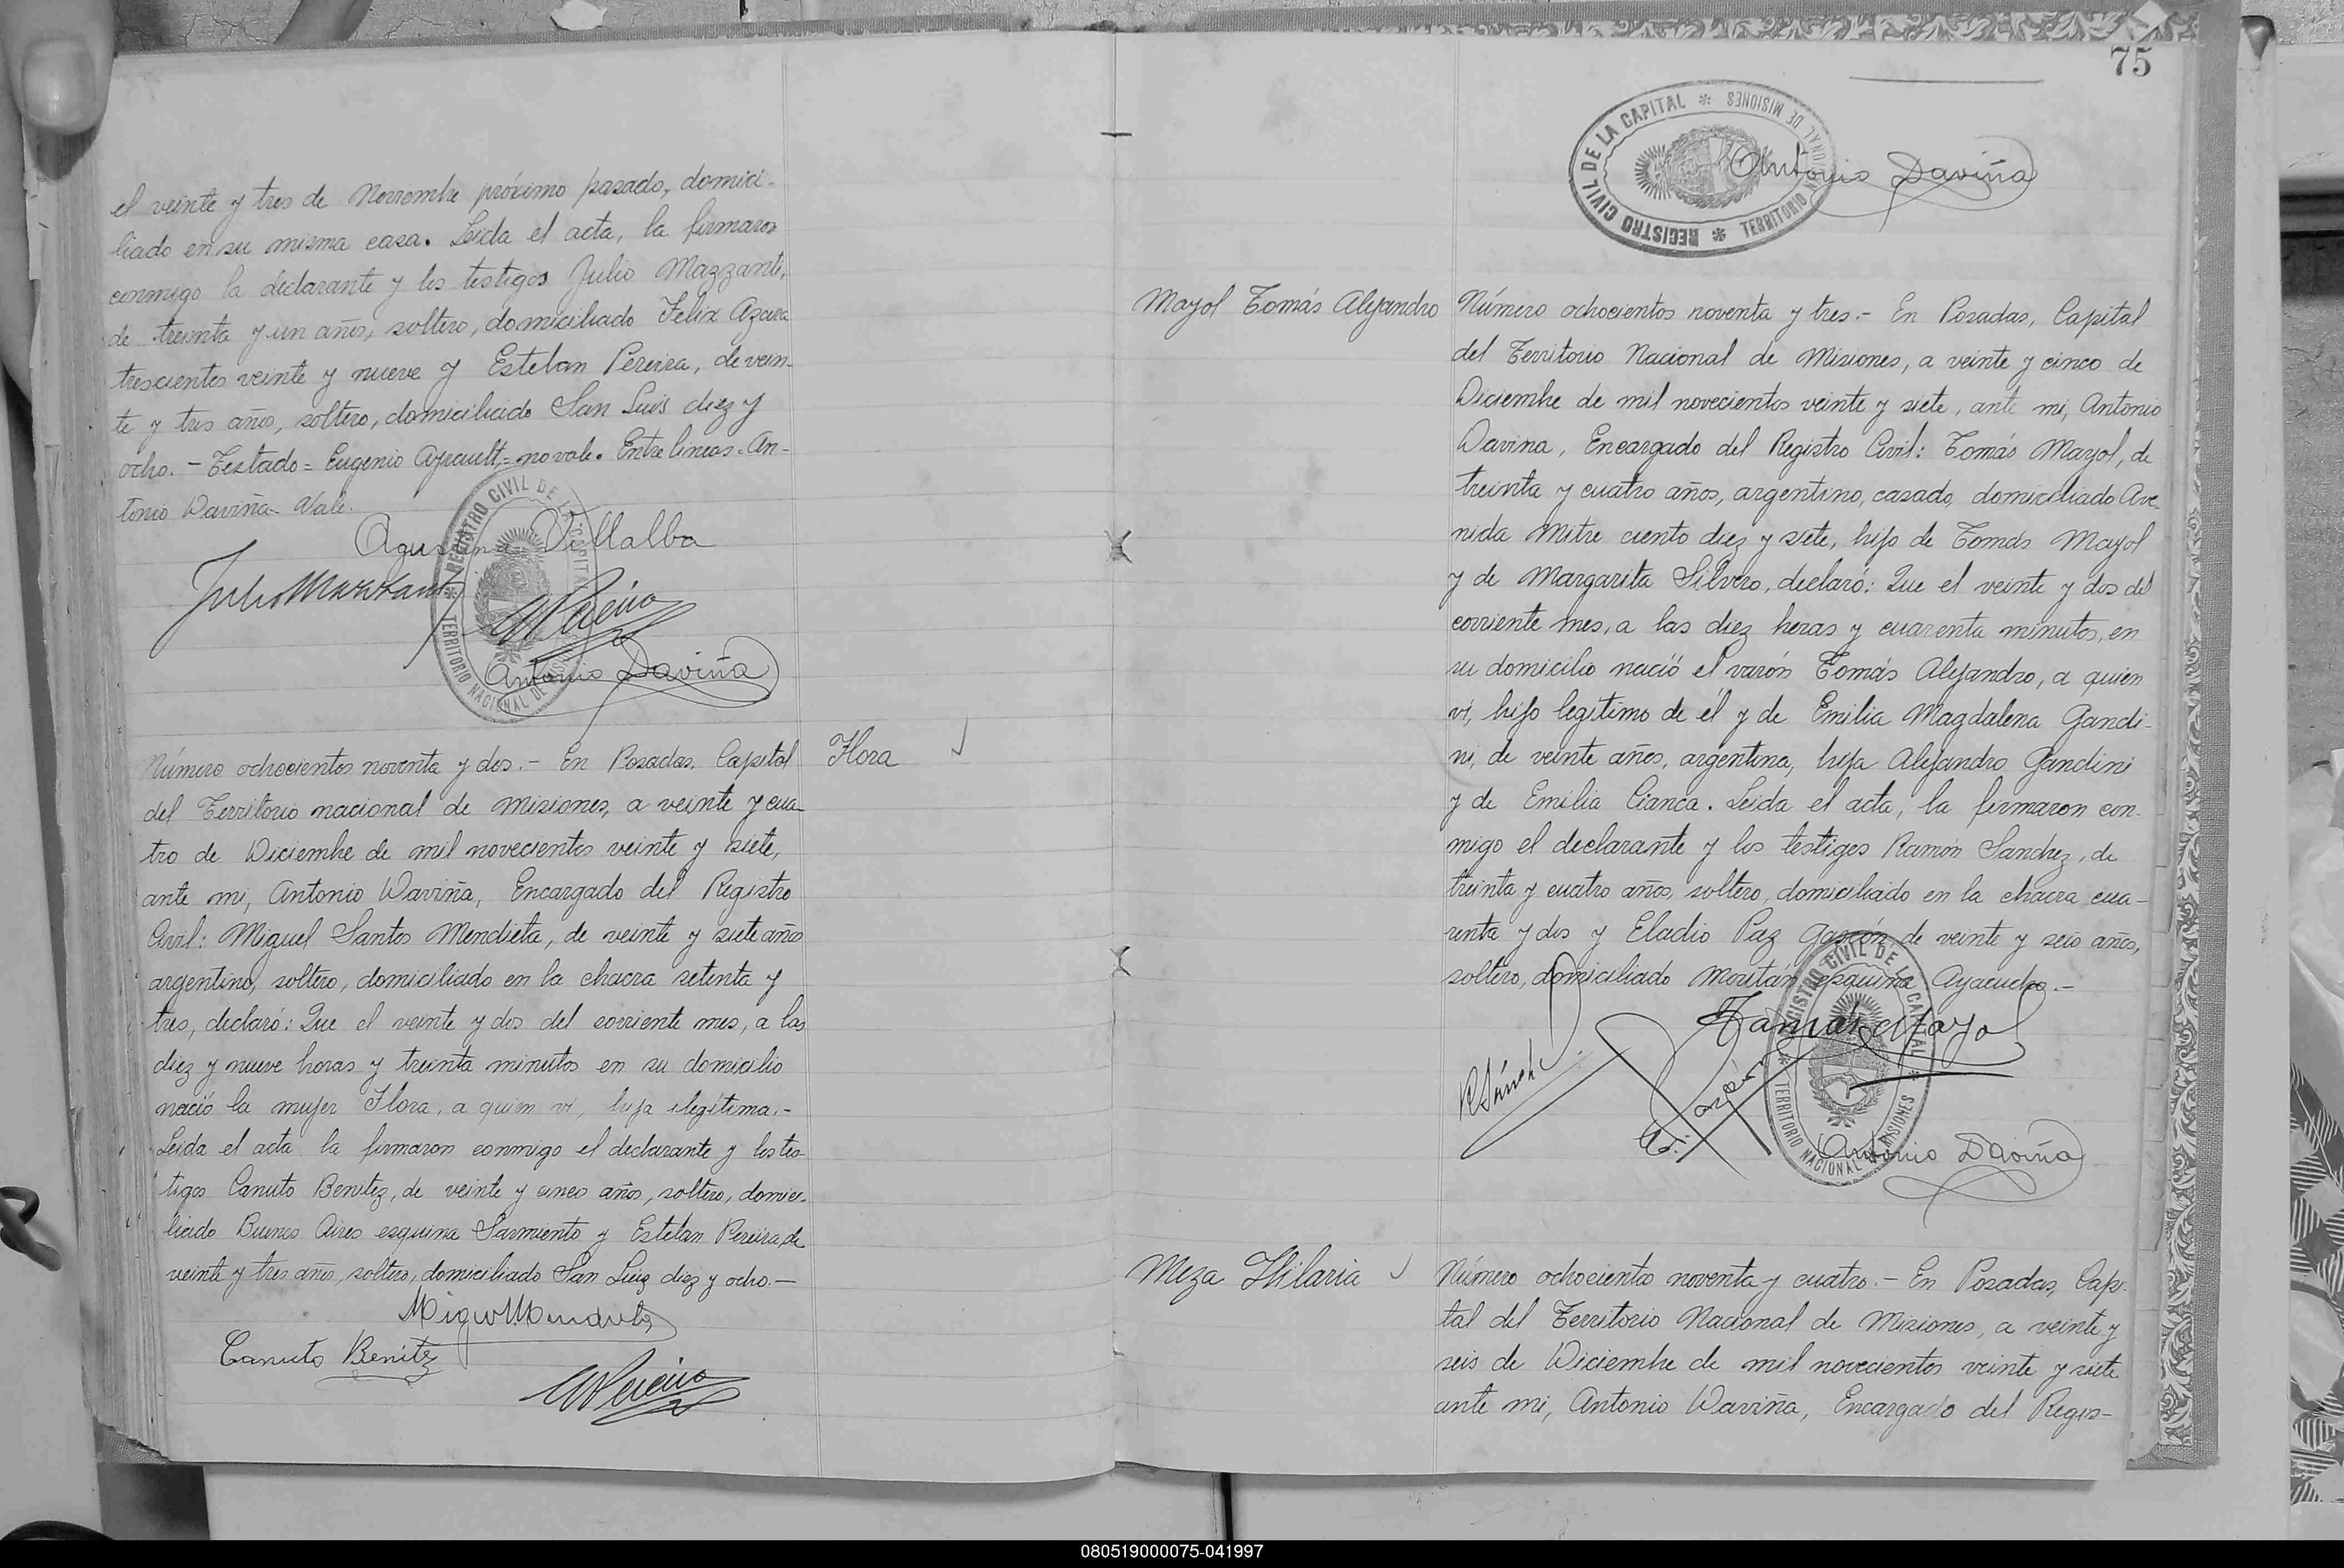 el veinte y tres de Noviembre próximo pasado, domici-
liado en su misma casa. Leida el acta, la firmaron
conmigo la declarante y los testigos Julio Mazzanti,
de treinta y un años, soltero, domiciliado Felix Azara
trescientos veinte y nueve y Esteban Pereira, de vein-
te y tres años, soltero, domiciliado San Luis diez y
ocho. - Testado = Eugenio = no vale. Entre lineas = An-
tonio Daviña - Vale.
Agustina Villalba
Julio Mazzanti
Pereira
Antonio Daviña
REGISTRO CIVIL DE LA CAPITAL
TERRITORIO NACIONAL DE MISIONES
Flora
Número ochocientos noventa y dos. - En Posadas, Capital
del Territorio nacional de Misiones, a veinte y cua-
tro de Diciembre de mil novecientos veinte y siete,
ante mi, Antonio Daviña, Encargado del Registro
Civil: Miguel Santos Mendieta, de veinte y siete años
argentino, soltero, domiciliado en la chacra setenta y
tres, declaró: Que el veinte y dos del corriente mes, a las
diez y nueve horas y treinta minutos en su domicilio
nació la mujer Flora, a quien vi, hija ilegítima. -
Leida el acta la firmaron conmigo el declarante y los tes-
tigos Canuto Benitez, de veinte y cinco años, soltero, domici-
liado Buenos Aires esquina Sarmiento y Esteban Pereira, de
veinte y tres años, soltero, domiciliado San Luis diez y ocho. -
Canuto Benitez
Pereira
75
REGISTRO CIVIL DE LA CAPITAL
TERRITORIO NACIONAL DE MISIONES
Antonio Daviña
Mayol Tomás Alejandro
Número ochocientos noventa y tres. - En Posadas, Capital
del Territorio Nacional de Misiones, a veinte y cinco de
Diciembre de mil novecientos veinte y siete, ante mi, Antonio
Davina, Encargado del Registro Civil: Tomás Mayol, de
treinta y cuatro años, argentino, casado, domiciliado Ave-
nida Mitre ciento diez y siete, hijo de Tomás Mayol
y de Margarita Silvero, declaró: Que el veinte y dos del
corriente mes, a las diez horas y cuarenta minutos, en
su domicilio nació el varón Tomás Alejandro, a quien
vi, hijo legítimo de él y de Emilia Magdalena Gandi-
ni, de veinte años, argentina, hija Alejandro Gandini
y de Emilia Cianca. Leida el acta, la firmaron con-
migo el declarante y los testigos Ramón Sanchez, de
treinta y cuatro años, soltero, domiciliado en la chacra cua-
renta y dos y Eladio Paz Garzón, de veinte y seis años,
soltero, domiciliado esquina Ayacucho. -
Tomás Mayol
R Sánchez
Antonio Daviña
REGISTRO CIVIL DE LA CAPITAL
TERRITORIO NACIONAL MISIONES
Meza Hilaria
Número ochocientos noventa y cuatro. - En Posadas, Capi-
tal del Territorio Nacional de Misiones, a veinte y
seis de Diciembre de mil novecientos veinte y siete
ante mi, Antonio Daviña, Encargado del Regis-
080519000075-041997